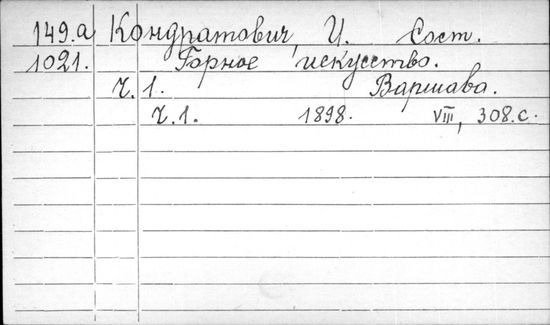 149.а Кондратович, И. Сост.
1021. Горное искусство.
Ч. 1. Варшава.
Ч. 1. 1898. VIII, 308. с.